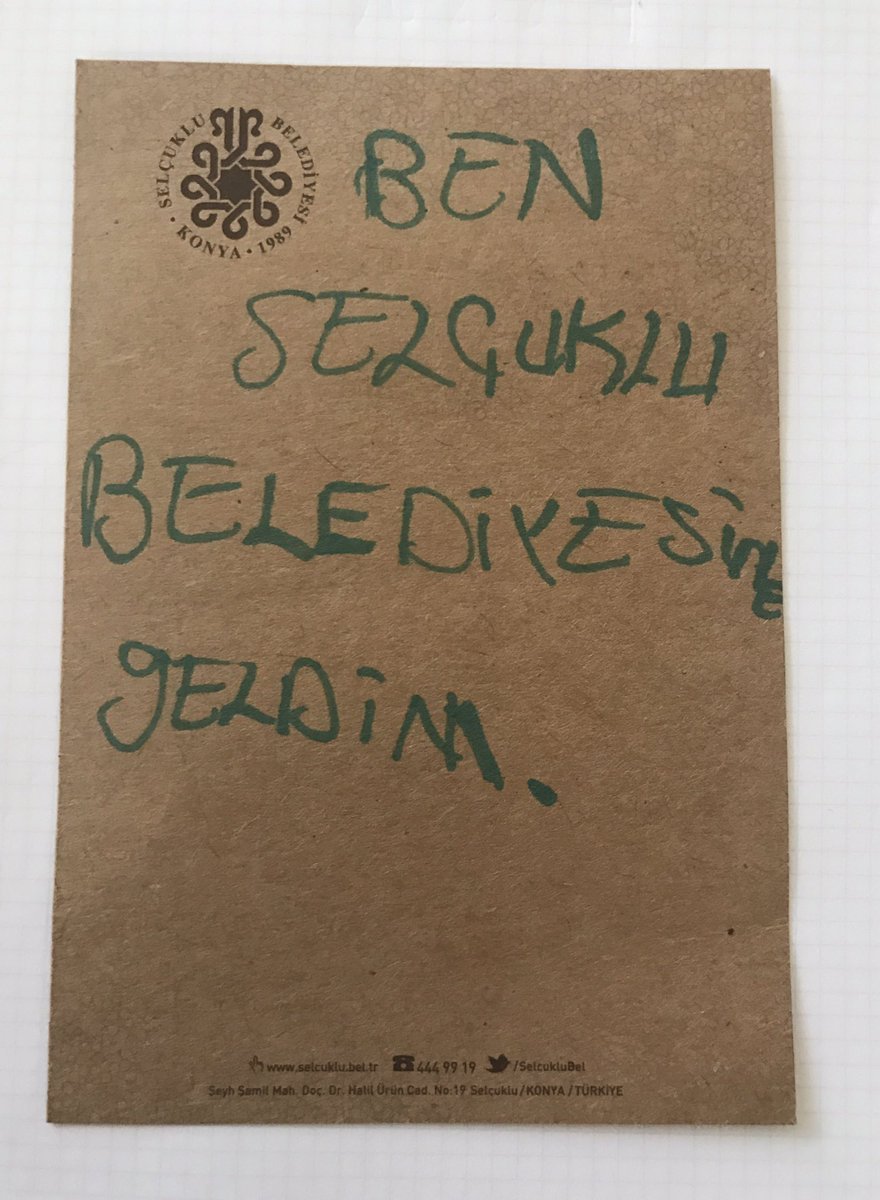 SELÇUKLU BELEDİYESİ
· KONYA · 1989
BEN
SELÇUKLU
BELEDİYESİNE
gELDİM.
www.selcuklu.bel.tr 444 99 19 /SelcukluBel
Şeyh Şamil Mah. Doç. Dr. Halil Ürün Cad. No:19 Selçuklu/KONYA/TÜRKİYE